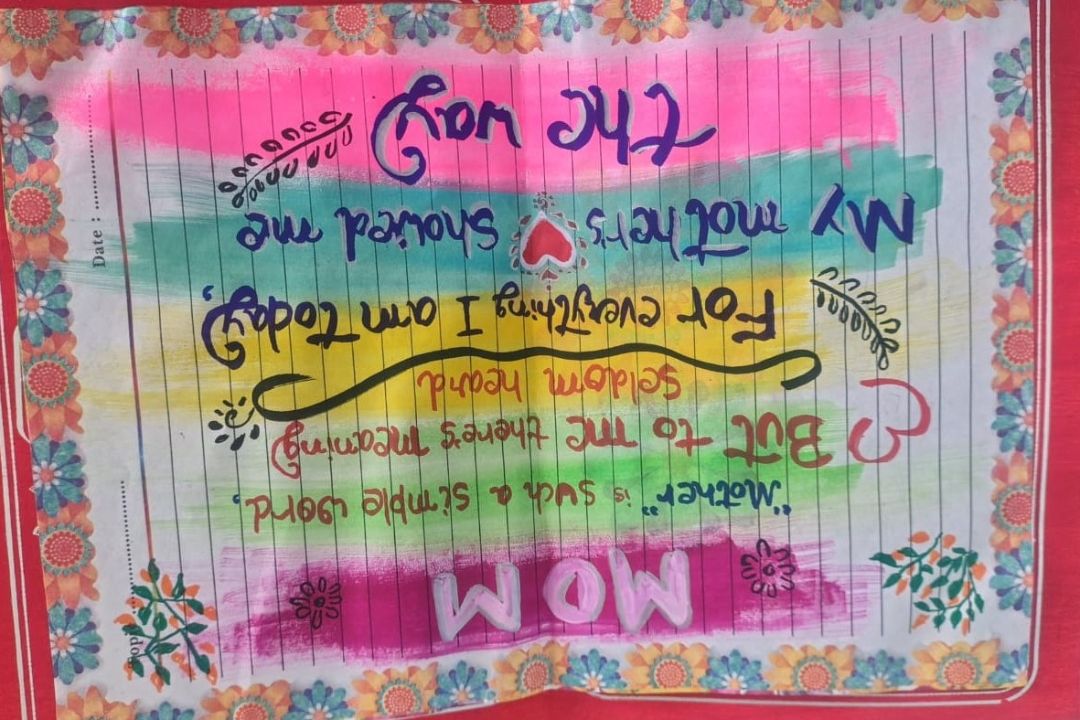 MOM
"Mother" is such a simple word.
But to me there's meaning
seldom heard
For everything I am today,
My mother's showed me
the way
Date :